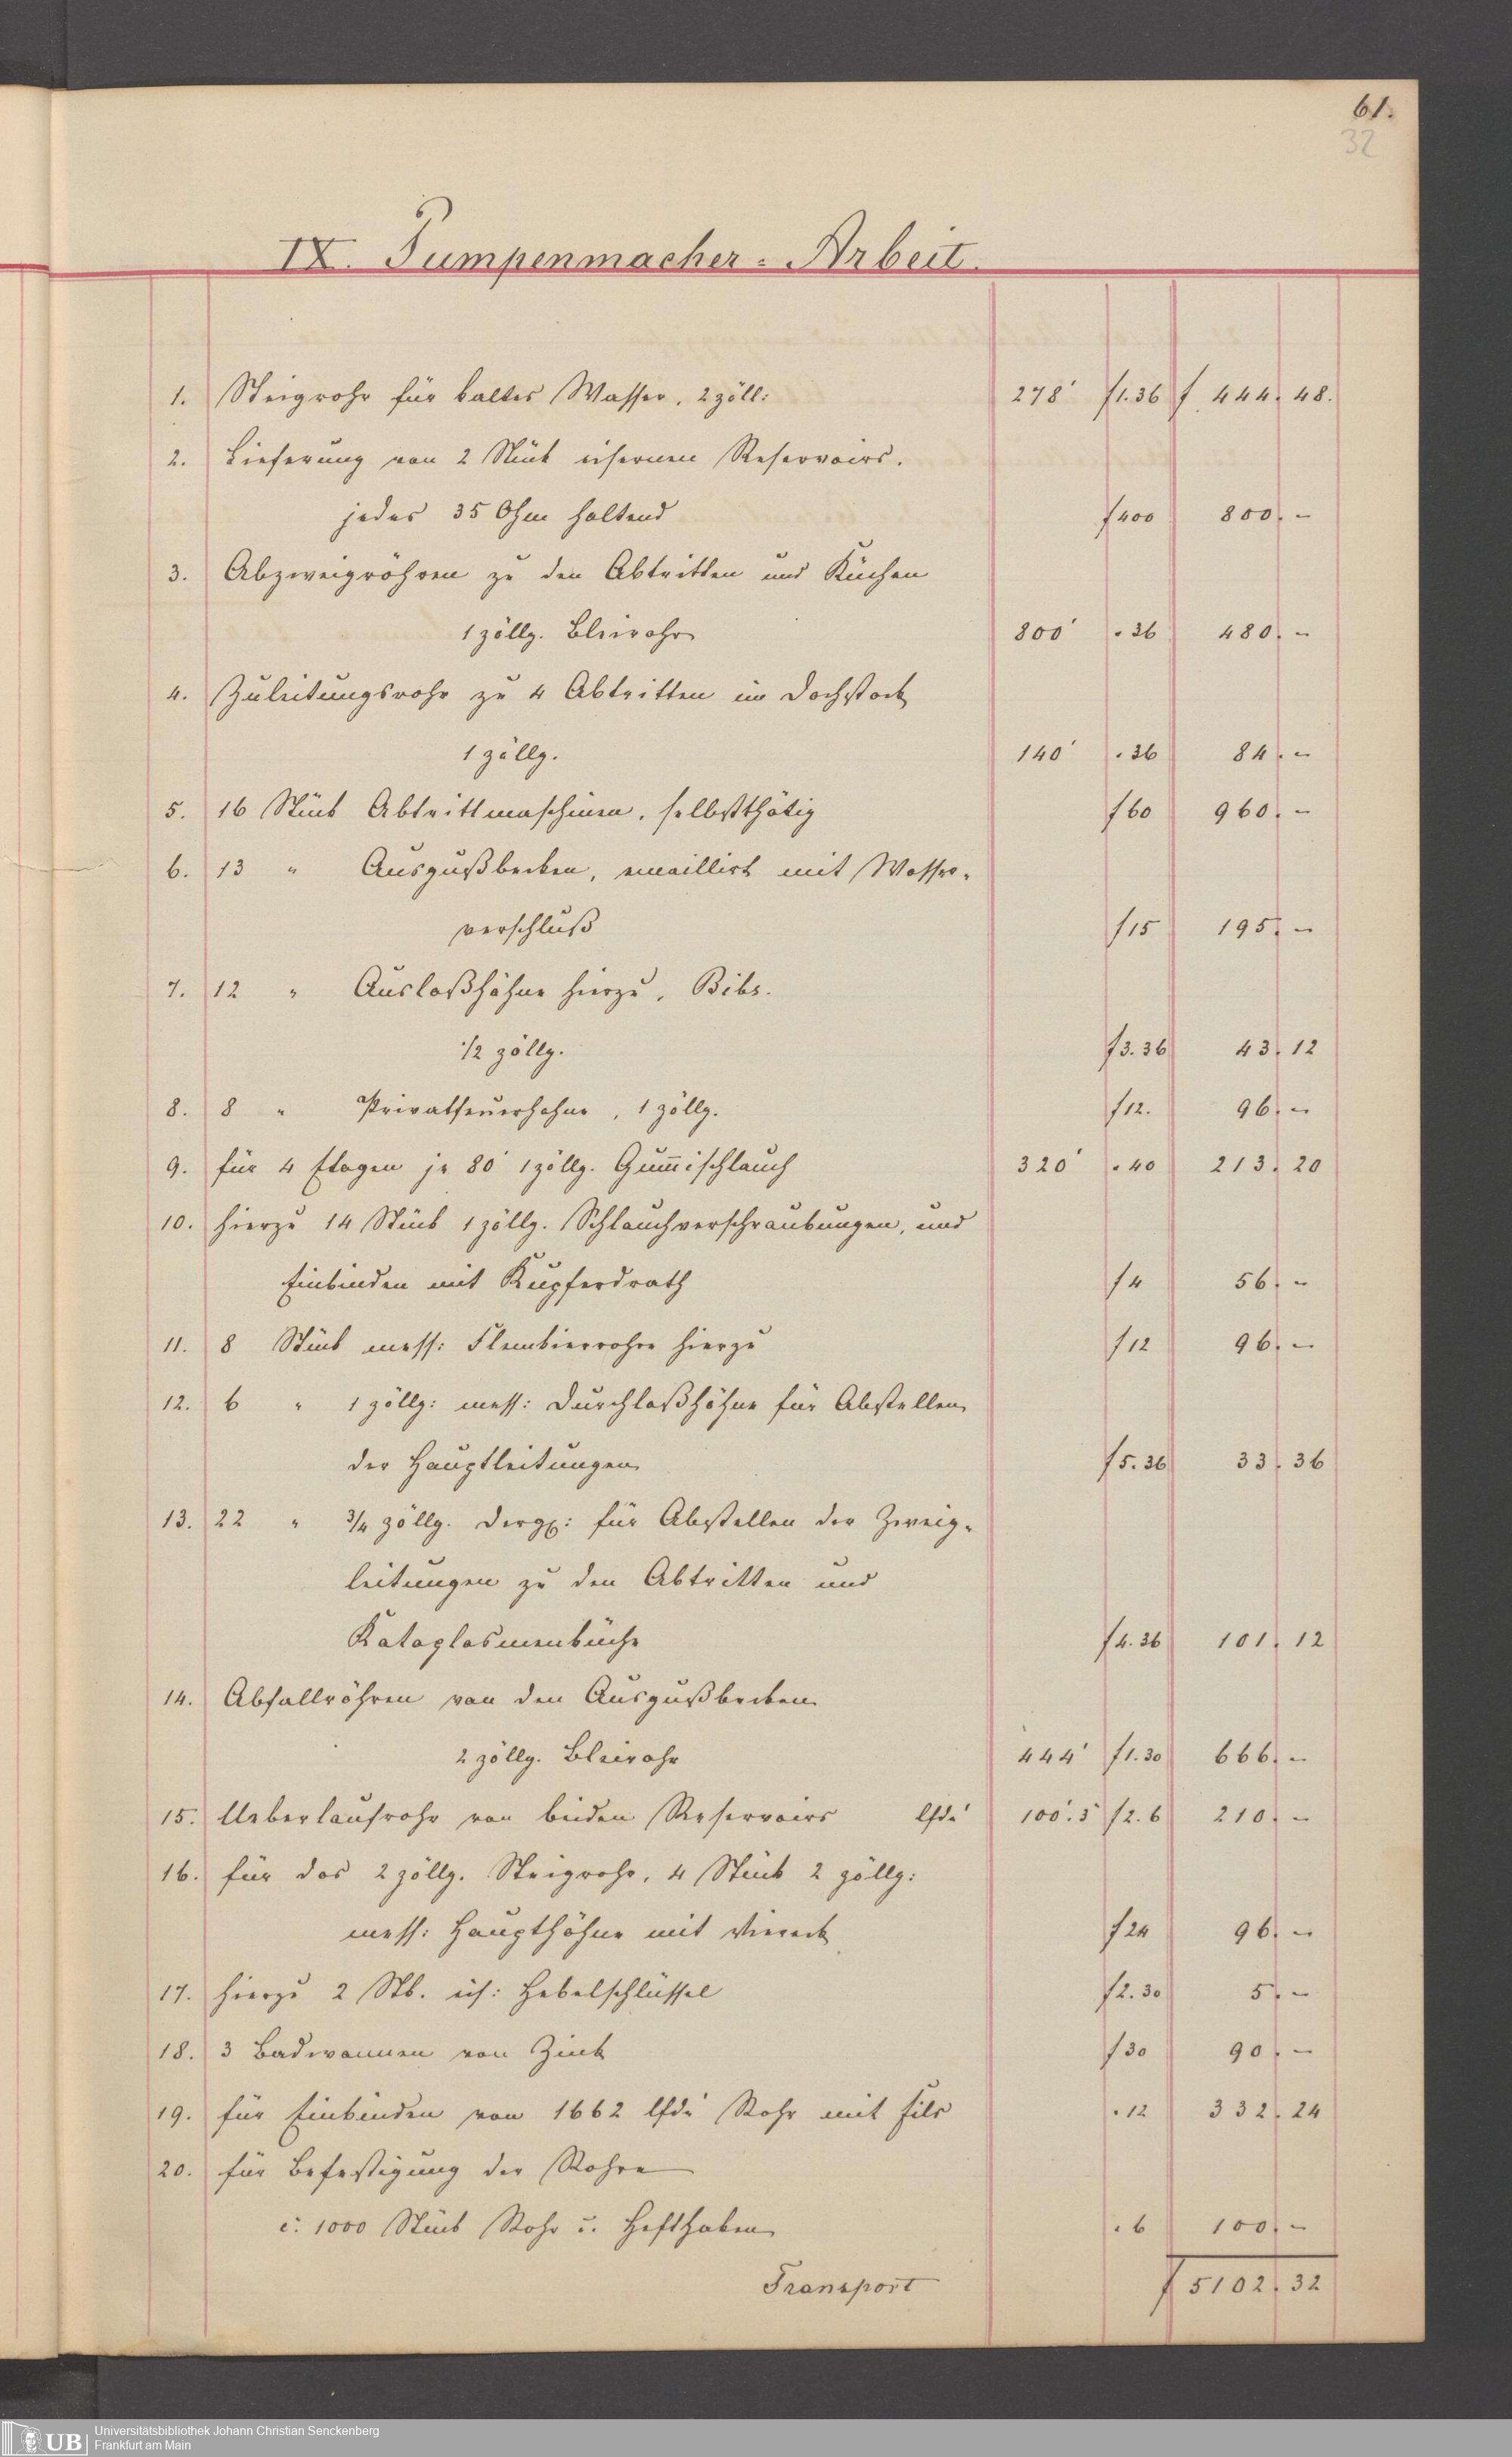 61.
32
IX. Pumpenmacher = Arbeit.
1. Steigrohr für kaltes Wasser, 2 zöll: 278' f 1.36 f 444. 48.
2. Lieferung von 2 Stück eisernen Reservoirs,
jedes 35 Ohm haltend f 400 800. –
3. Abzweigröhren zu den Abtritten und Küchen
1 zöllg. Bleirohr 800' " 36 480. –
4. Zuleitungsrohr zu 4 Abtritten im Dachstock
1 zöllg. 140' " 36 84. –
5. 16 Stück Abtrittmaschinen, selbstthätig f 60 960. –
6. 13 " Ausgußbecken, emaillirt mit Wasser-
verschluß f 15 195. –
7. 12 " Auslaßhähne hierzu, Bibs.
1/2 zöllg. f 3.36 43. 12
8. 8 " Privatfeuerhahne, 1 zöllg. f 12. 96. –
9. für 4 Etagen je 80' 1 zöllg. Gum̅ischlauch 320' " 40 213. 20
10. hierzu 14 Stück 1 zöllg. Schlauchverschraubungen, und
Einbinden mit Kupferdrath f 4 56. –
11. 8 Stück mess: Flembierrohre hierzu f 12 96. –
12. 6 " 1 zöllg: mess: Durchlaßhähne für Abstellen
der Hauptleitungen f 5.36 33. 36
13. 22 " 3/4 zöllg. dergl: für Abstellen der Zweig-
leitungen zu den Abtritten und
Kataplasmenküche f 4.36 101. 12
14. Abfallröhren von den Ausgußbecken
2 zöllg. Bleirohr 444' f 1.30 666. –
15. Ueberlaufrohr von beiden Reservoirs lfde' 100'.5 f 2.6 210. –
16. für das 2 zöllg. Steigrohr, 4 Stück 2 zöllg:
mess: Haupthähne mit Viereck f 24 96. –
17. hierzu 2 Stk. eis: Hebelschlüssel f 2.30 5. –
18. 3 Badwannen von Zink f 30 90. –
19. für Einbinden von 1662 lfde' Rohr mit Filz " 12 332. 24
20. für Befestigung der Rohre
c: 1000 Stück Rohr u. Hefthaken " 6 100. –
Transport f 5102. 32
UB Universitätsbibliothek Johann Christian Senckenberg
Frankfurt am Main